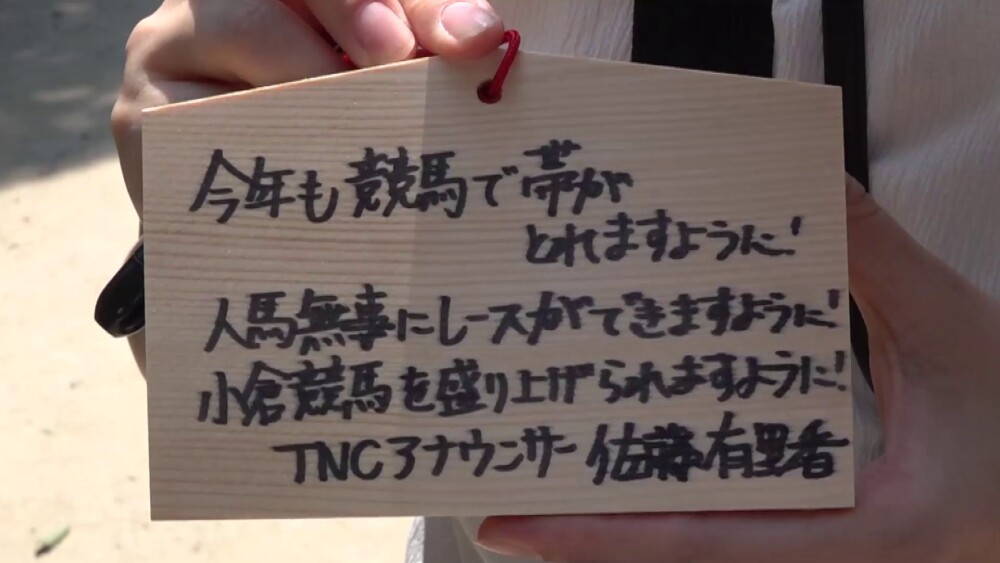 今年も競馬で帯が
とれますように!
人馬無事にレースができますように!
小倉競馬を盛り上げられますように!
TNCアナウンサー 佐藤有里香